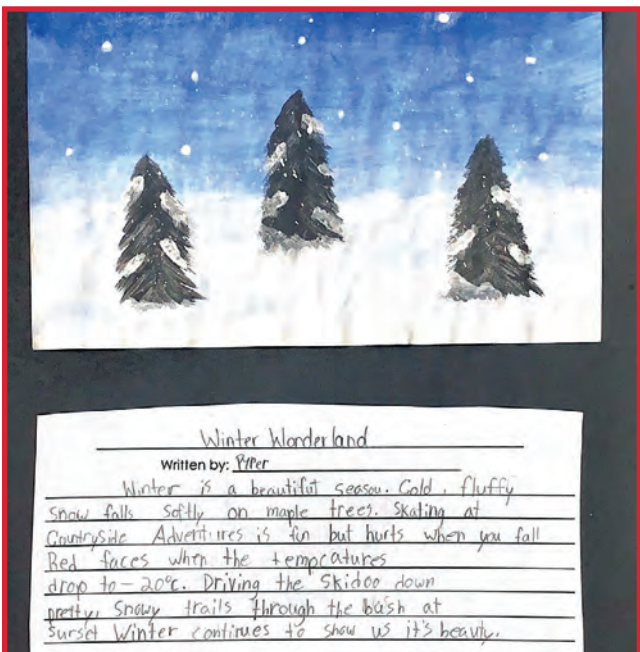 Winter Wonderland
Written by: Piper
Winter is a beautiful season. Cold, fluffy
snow falls softly on maple trees. Skating at
Countryside Adventures is fun but hurts when you fall
Red faces when the tempratures
drop to -20°c. Driving the Skidoo down
pretty, snowy trails through the bush at
sunset Winter continues to show us it's beauty.